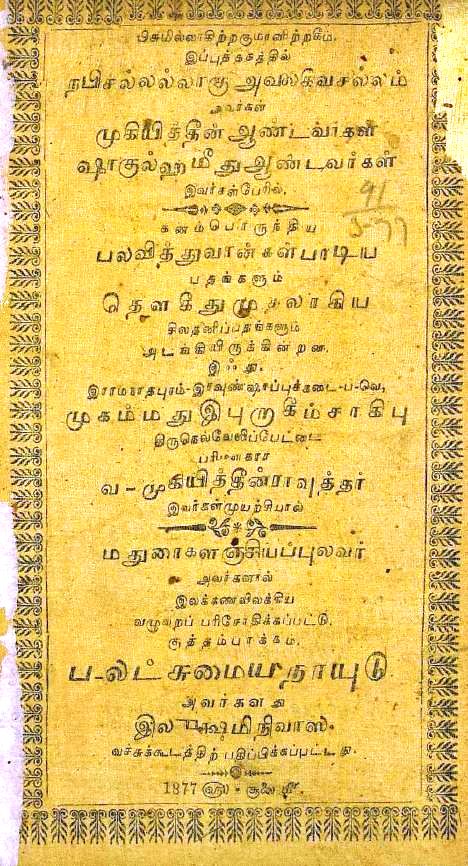 பிசுமில்லாகிற்றகுமானிற்றகீம்.
இப்புத்தகத்தில்
நபிசல்லல்லாகு அவலகிவசல்லம்
அவர்கள்
முகியித்தீன் ஆண்டவர்கள்
ஷாகுல்ஹமீது ஆண்டவர்கள்
இவர்கள்பேரில்,
91
577
கனம்பொருந்திய
பலவித்துவான்கள்பாடிய
பதங்களும்
தௌகீதுமுசலாகிய
சிலதனிப்பதங்களும்
அடங்கியிருக்கின்றன.
இஃது.
இராமநாதபுரம்-இரவுண்ஷாப்புக்கடை-ப-வெ,
முகம்மது இபுறுகீம்சாகிபு
திருநெல்வேலிப்பேட்டை
வ-முகியித்தீன்ராவுத்தர்
இவர்கள்முயற்சியால்
மதுரைகளஞ்சியப்புலவர்
அவர்களால்
இலக்கணவிலக்கிய
வழுவறப் பரிசோதிக்கப்பட்டு,
சூத்தம்பாக்கம்,
ப-லிட்சுமையநாயுடு
அவர்களது
இலக்ஷுமிநிவாஸ
வச்சுக்கூடத்திற் பதிப்பிக்கப்பட்டது.
1877 ௵ சூலை ௴.